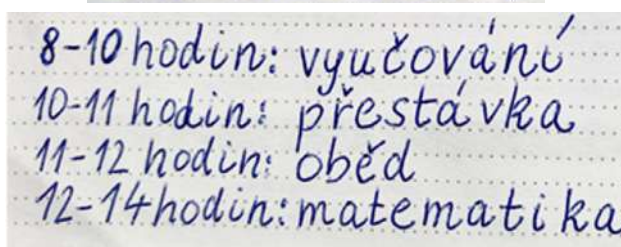 8-10 hodin: vyučování
10-11 hodin: přestávka
11-12 hodin: oběd
12-14 hodin: matematika